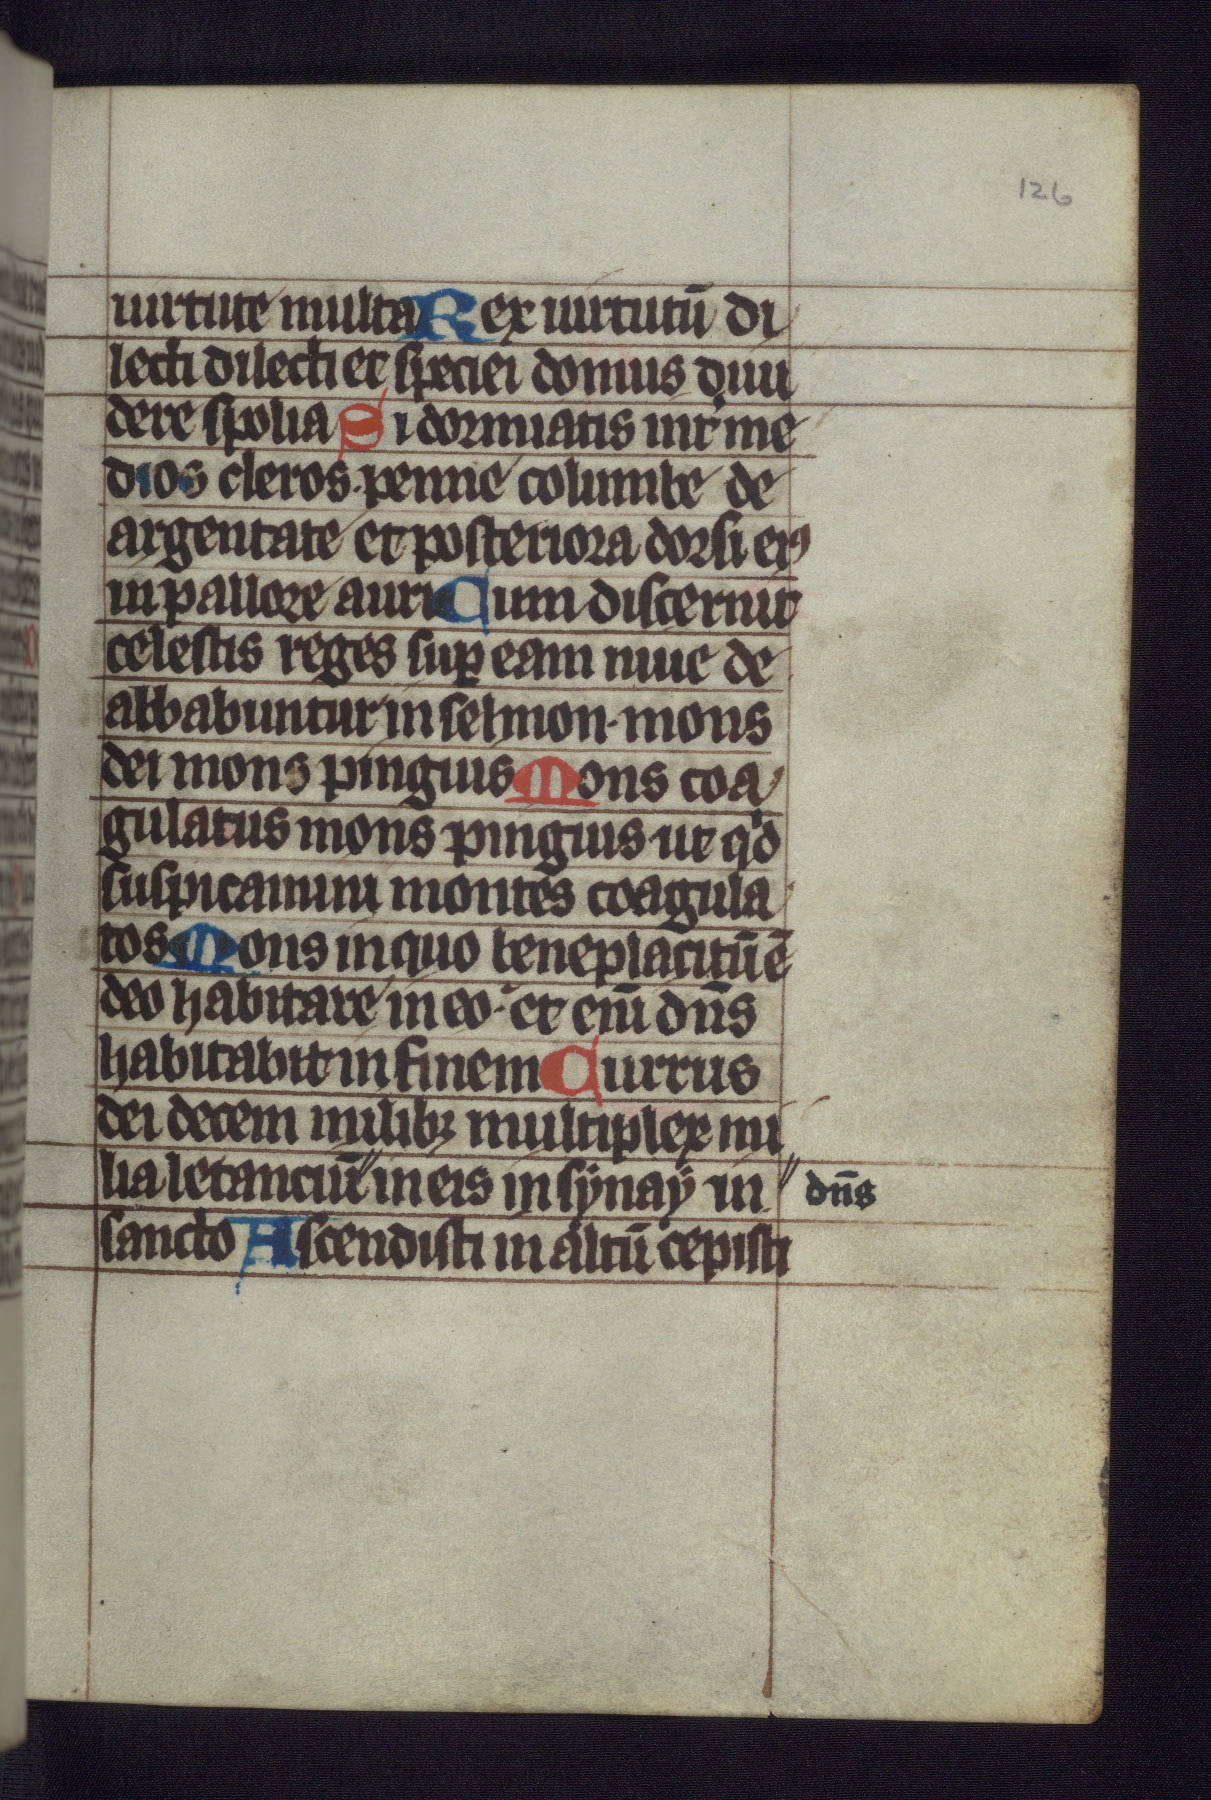 126
uirtute multa Rex uirtutū di
lecti dilecti et speciei domus diui
dere spolia Si dormiatis int͛ me
dios cleros. penne columbe de
argentate et posteriora dorsi eiꝰ
in pallore auri Cum discernit
celestis reges suꝑ eam niue de
albabuntur in selmon. mons
dei mons pinguis Mons coa
gulatus mons pinguis. ut qͥd
suspicamini montes coagula
tos Mons in quo beneplacitū ē
deo habitare in eo. et eni᷒ dn̄s
habitabit in finem Currus
dei decem milibꝫ multiplex mi
lia letanciū // in eis in sẏnaẏ in // dn̄s
sancto Ascendisti in altū cepisti